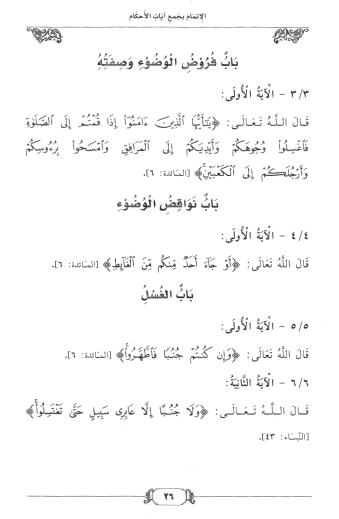 الإتمام بجمع آيات الأحكام
بَابُ فُرُوضِ الْوُضُوْءِ وَصِفَتِهِ
٣/٣ - الْآيَةُ الْأُولَى:
قَالَ اللَّهُ تَعَالَى: ﴿يَٰٓأَيُّهَا ٱلَّذِينَ ءَامَنُوٓا۟ إِذَا قُمْتُمْ إِلَى ٱلصَّلَوٰةِ
فَٱغْسِلُوا۟ وُجُوهَكُمْ وَأَيْدِيَكُمْ إِلَى ٱلْمَرَافِقِ وَٱمْسَحُوا۟ بِرُءُوسِكُمْ
وَأَرْجُلَكُمْ إِلَى ٱلْكَعْبَيْنِ ۚ﴾ [المائدة: ٦].
بَابُ نَوَاقِضِ الْوُضُوْءِ
٤/٤ - الْآيَةُ الْأُولَى:
قَالَ اللَّهُ تَعَالَى: ﴿أَوْ جَآءَ أَحَدٌ مِّنكُم مِّنَ ٱلْغَآئِطِ﴾ [المائدة: ٦].
بَابُ الغُسْلُ
٥/٥ - الْآيَةُ الْأُولَى:
قَالَ اللَّهُ تَعَالَى: ﴿وَإِن كُنتُمْ جُنُبًا فَٱطَّهَّرُوا۟ ۚ﴾ [المائدة: ٦].
٦/٦ - الْآيَةُ الثَّانِيَةُ:
قَالَ اللَّهُ تَعَالَى: ﴿وَلَا جُنُبًا إِلَّا عَابِرِى سَبِيلٍ حَتَّىٰ تَغْتَسِلُوا۟ ۚ﴾
[النِّسَاء: ٤٣].
٢٦